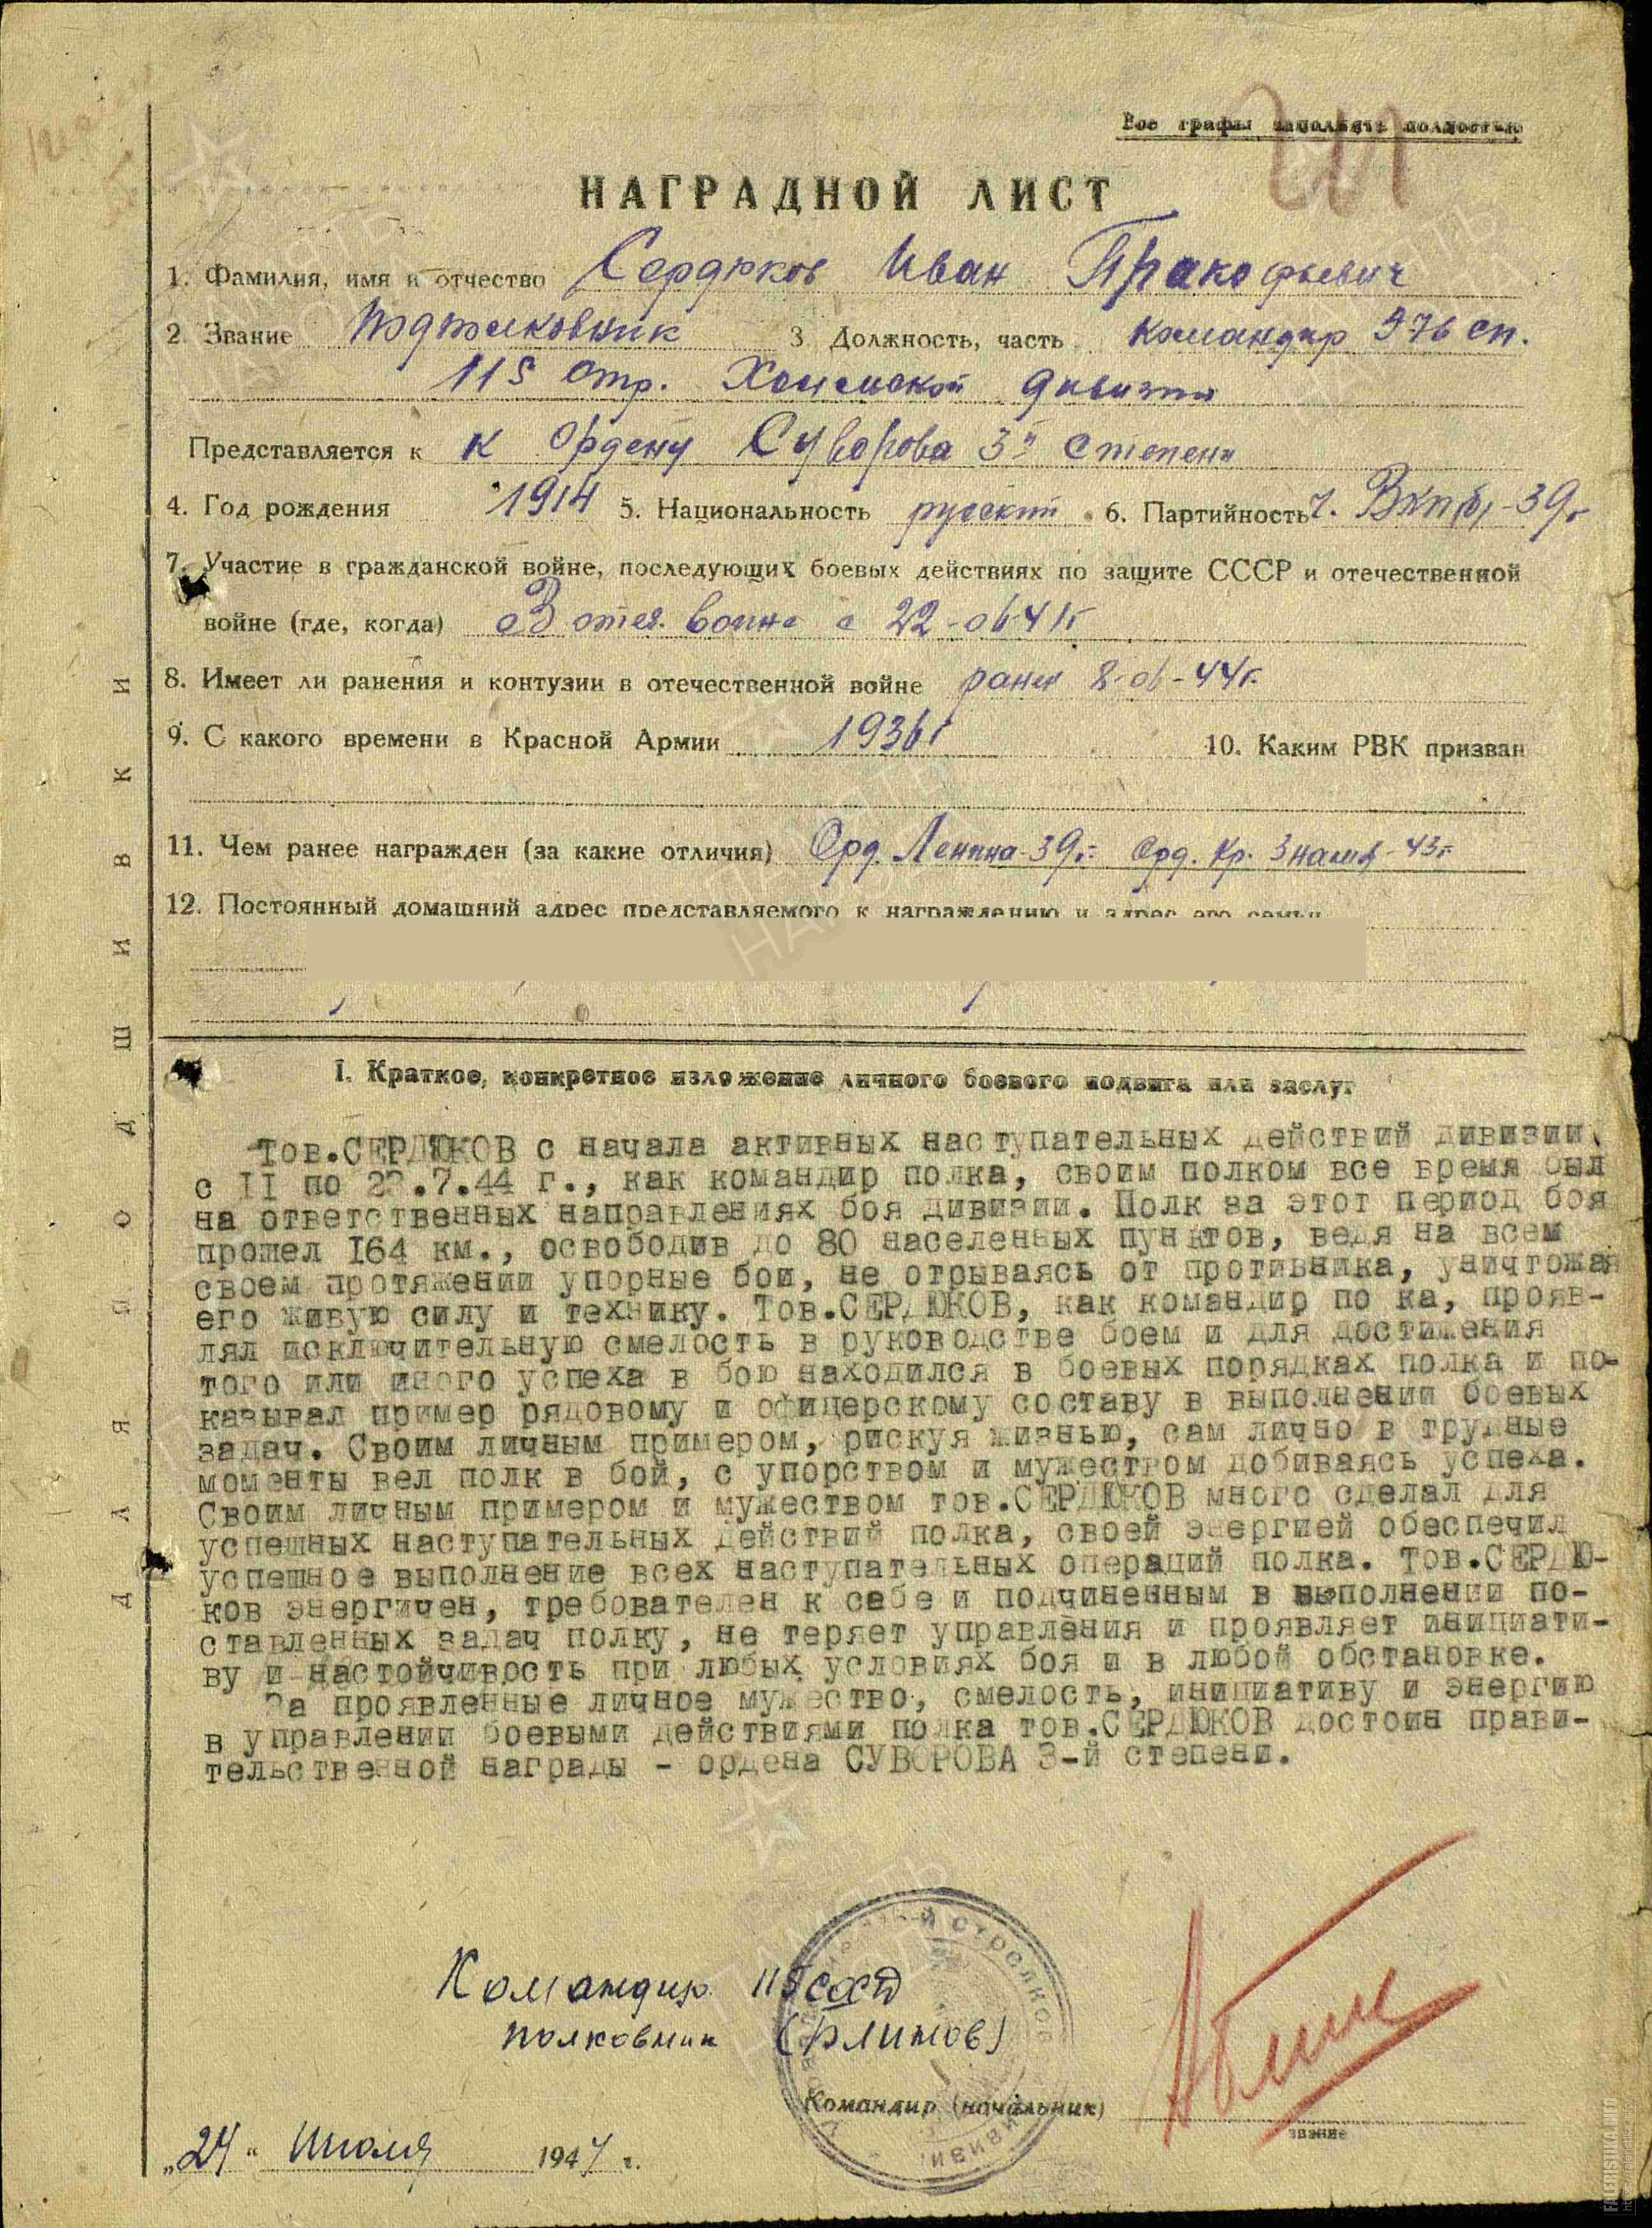 Все графы заполнять полностью
НАГРАДНОЙ ЛИСТ
1. Фамилия, имя и отчество Сердюков Иван Пракофьевич
2. Звание подполковник 3. Должность, часть командир 576 сп.
115 стр. Холмской дивизии
Представляется к к Ордену Суворова 3й степени
4. Год рождения 1914 5. Национальность русский 6. Партийность ч. ВКП(б)-39г
7. Участие в гражданской войне, последующих боевых действиях по защите СССР и отечественной
войне (где, когда) В отеч. войне с 22-06-41г
8. Имеет ли ранения и контузии в отечественной войне ранен 8-06-44г.
9. С какого времени в Красной Армии 1936г 10. Каким РВК призван
11. Чем ранее награжден (за какие отличия) Орд. Ленина-39г. Орд. Кр. Знамя-43г
12. Постоянный домашний адрес представляемого к награждению и адрес его семьи
ДЛЯ ПОДШИВКИ
I. Краткое, конкретное изложение личного боевого подвига или заслуг
Тов.СЕРДЮКОВ с начала активных наступательных действий дивизии
с II по 23.7.44 г., как командир полка, своим полком все время был
на ответственных направлениях боя дивизии. Полк за этот период боя
прошел I64 км., освободив до 80 населенных пунктов, ведя на всем
своем протяжении упорные бои, не отрываясь от противника, уничтожая
его живую силу и технику. Тов.СЕРДЮКОВ, как командир по ка, прояв-
лял исключительную смелость в руководстве боем и для достижения
того или иного успеха в бою находился в боевых порядках полка и по-
казывал пример рядовому и офицерскому составу в выполнении боевых
задач. Своим личным примером, рискуя жизнью, сам лично в трудные
моменты вел полк в бой, с упорством и мужеством добиваясь успеха.
Своим личным примером и мужеством тов.СЕРДЮКОВ много сделал для
успешных наступательных действий полка, своей энергией обеспечил
успешное выполнение всех наступательных операций полка. Тов.СЕРДЮ-
КОВ энергичен, требователен к себе и подчиненным в выполнении по-
ставленных задач полку, не теряет управления и проявляет инициати-
ву и настойчивость при любых условиях боя и в любой обстановке.
За проявленные личное мужество, смелость, инициативу и энергию
в управлении боевыми действиями полка тов.СЕРДЮКОВ достоин прави-
тельственной награды - ордена СУВОРОВА 3-й степени.
Командир 115 схд
полковник (Блинов)
Командир (начальник)
звание
„24" Июля 1944 г.
FALERISTIKA.INFO